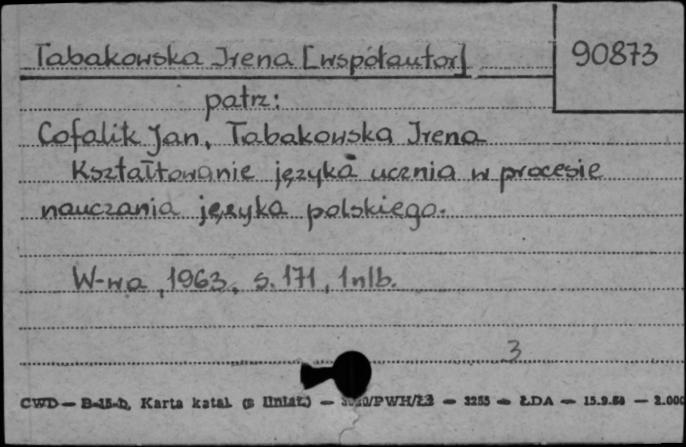 Tabakowska Irena [współautor] 90873
patrz:
Cofalik Jan, Tabakowska Irena
Kształtowanie języka ucznia w procesie
nauczania języka polskiego.
W-wa, 1963, s. 171, 1nlb.
3
CWD — B-15-b, Karta katal. (z liniat.) — /PWH/ŁÓ — 3255 — ŁDA — 15.9.58 — 2.000